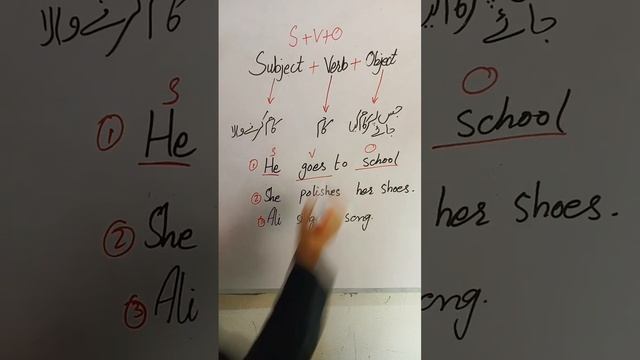 S+V+O
Subject + Verb + Object
کام کرنے والا کام جس پر کام کیا جائے
S V O
① He goes to school
② She polishes her shoes.
③ Ali song.